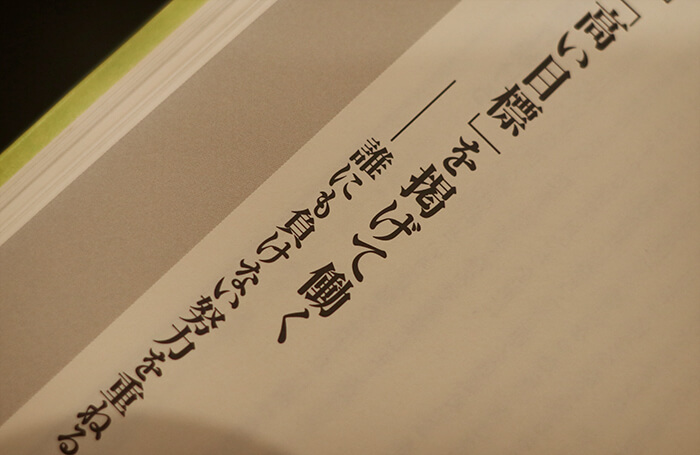 「高い目標」を掲げて働く
──誰にも負けない努力を重ねる